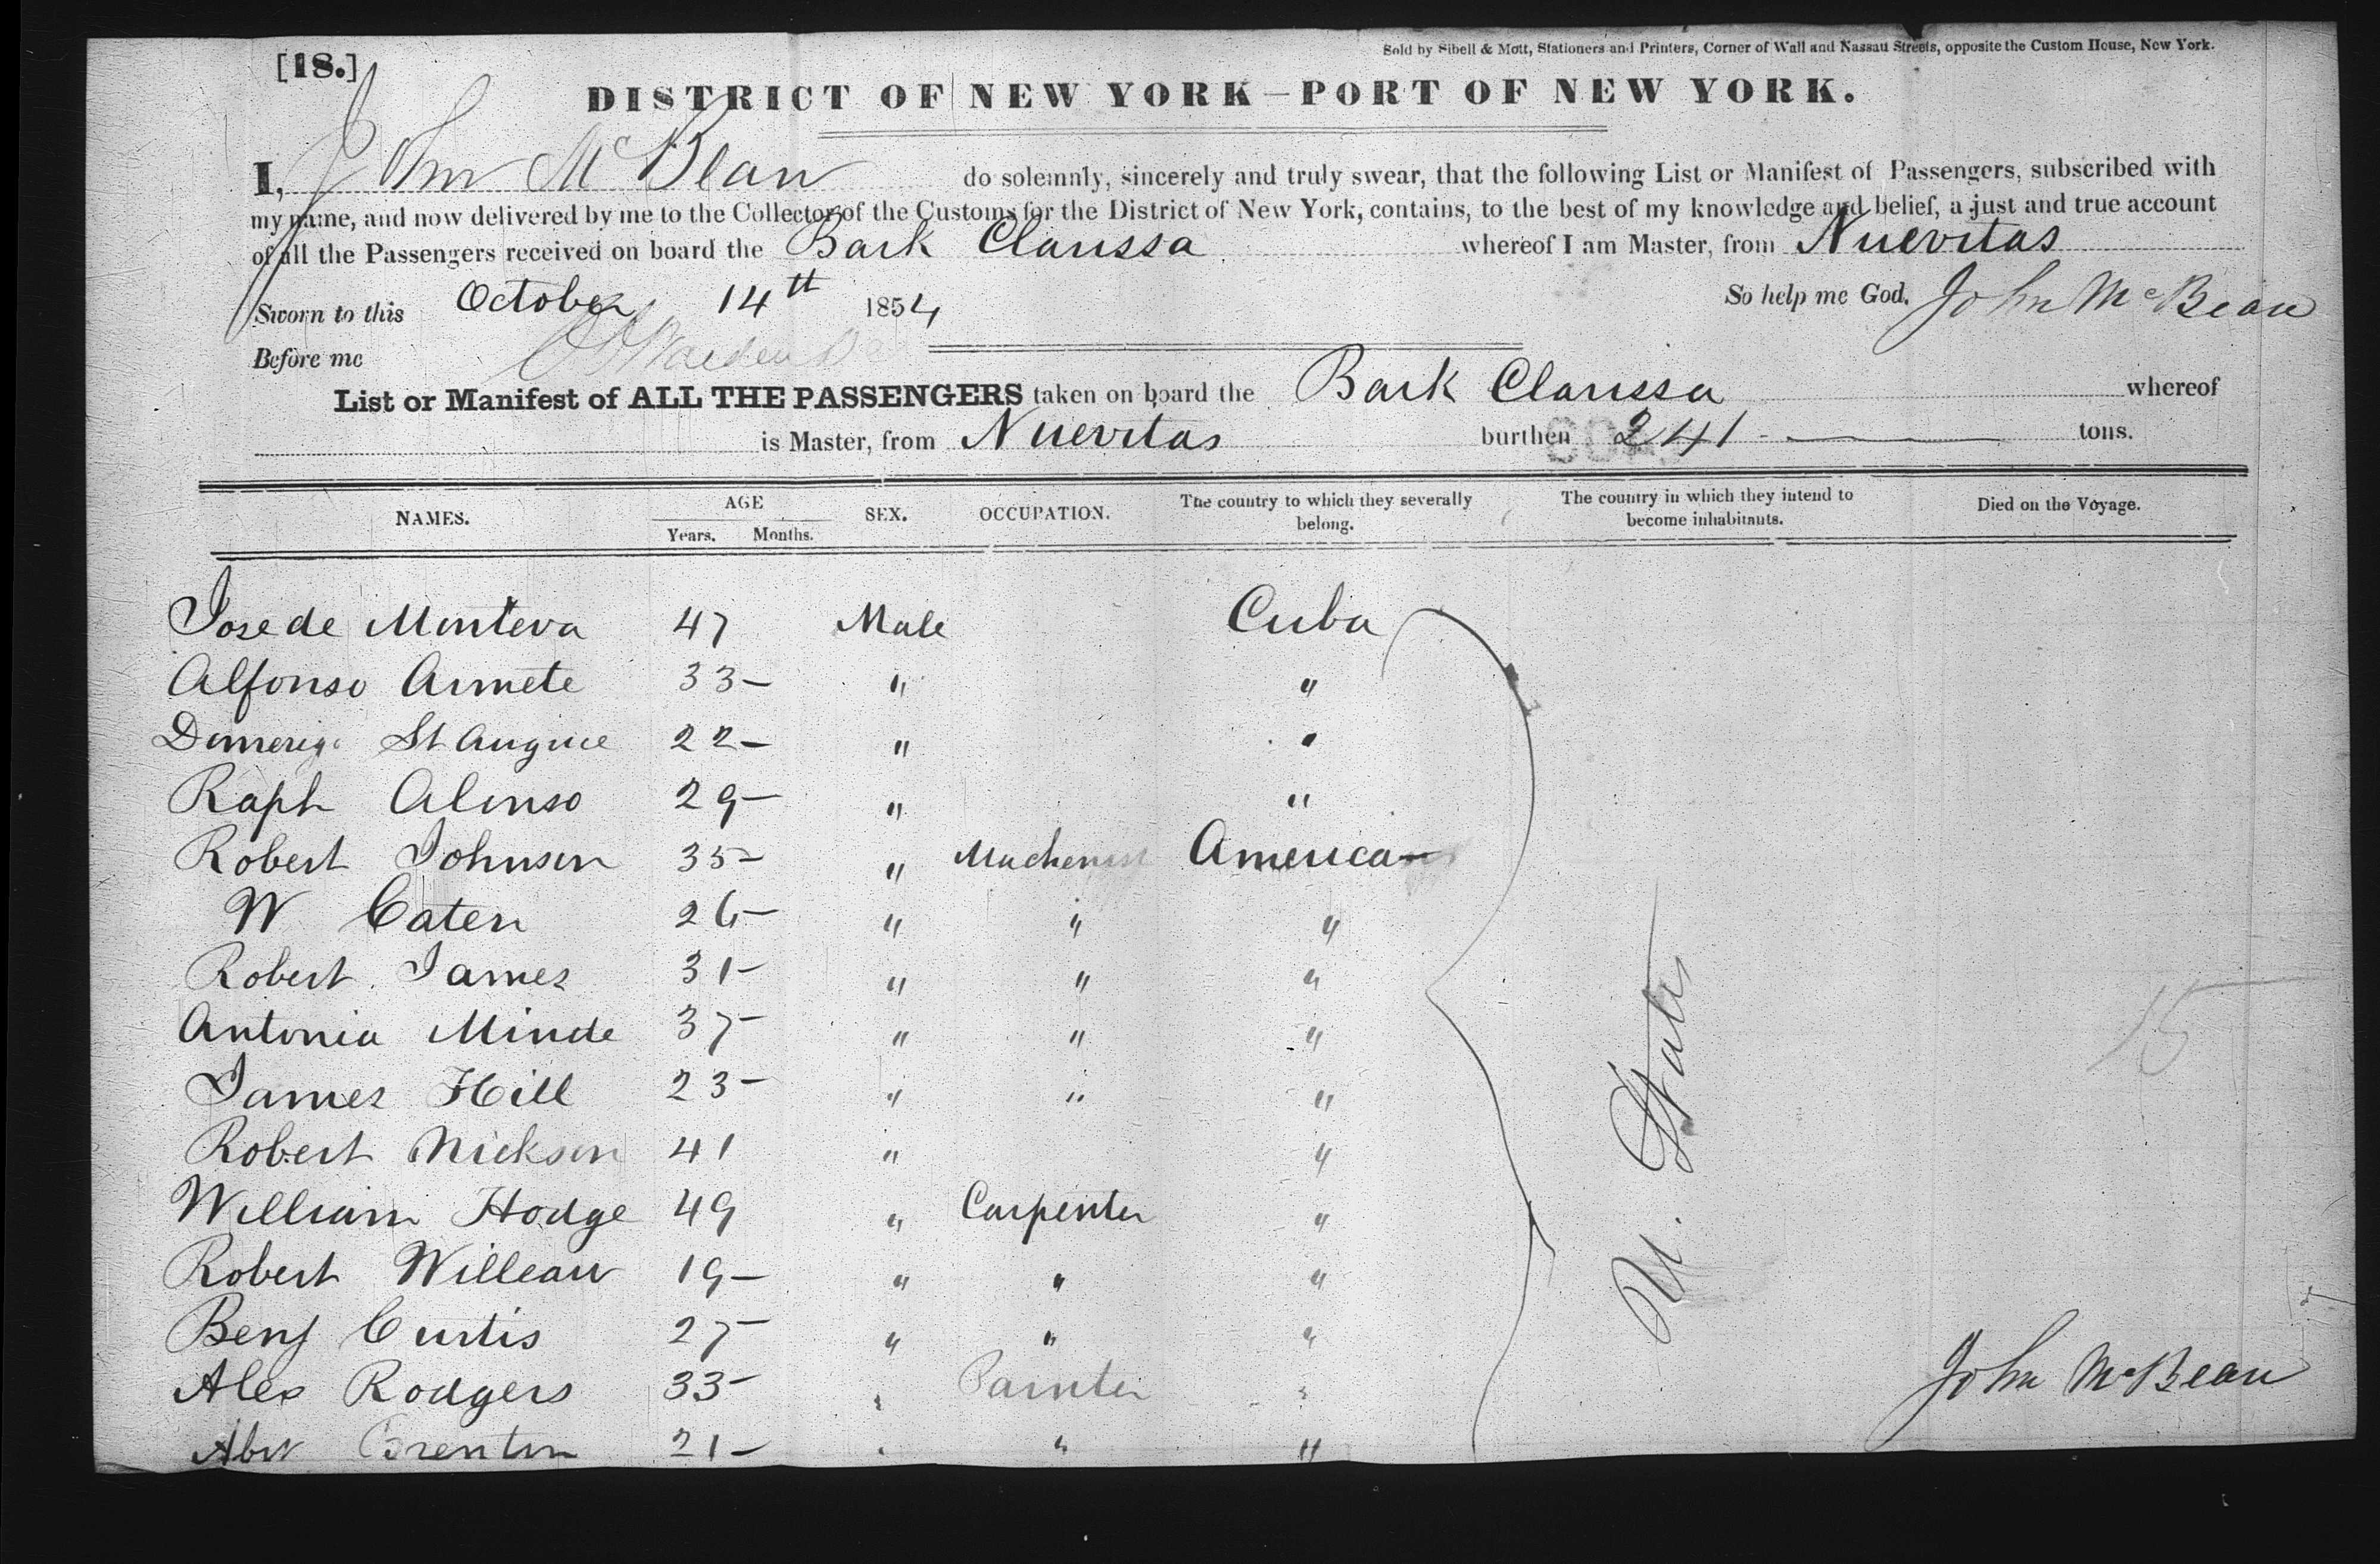 [18.]
Sold by Sibell & Mott, Stationers and Printers, Corner of Wall and Nassau Streets, opposite the Custom House, New York.
DISTRICT OF NEW YORK—PORT OF NEW YORK.
I, John McBean do solemnly, sincerely and truly swear, that the following List or Manifest of Passengers, subscribed with
my name, and now delivered by me to the Collector of the Customs for the District of New York, contains, to the best of my knowledge and belief, a just and true account
of all the Passengers received on board the Bark Clarissa whereof I am Master, from Nuevitas
Sworn to this October 14th 1854 So help me God. John McBean
Before me
List or Manifest of ALL THE PASSENGERS taken on board the Bark Clarissa whereof
is Master, from Nuevitas burthen 241 tons.
NAMES. AGE Years. Months. SEX. OCCUPATION. The country to which they severally belong. The country in which they intend to become inhabitants. Died on the Voyage.
Jose de Monteva 47 Male Cuba
Alfonso Armete 33 — " "
St Augu 22 — " "
Raph Alonso 29 — " "
Robert Johnson 35 — " Machenist America
W Caten 26 — " " "
Robert James 31 — " " "
Antonia Minde 37 — " " "
James Hill 23 — " " "
Robert Nickson 41 " "
William Hodge 49 " Carpenter "
Robert Willeau 19 — " " "
Benj Curtis 27 — " " "
Alex Rodgers 33 — " Painter "
Brenton 21 — " " "
U. States
15
John McBean